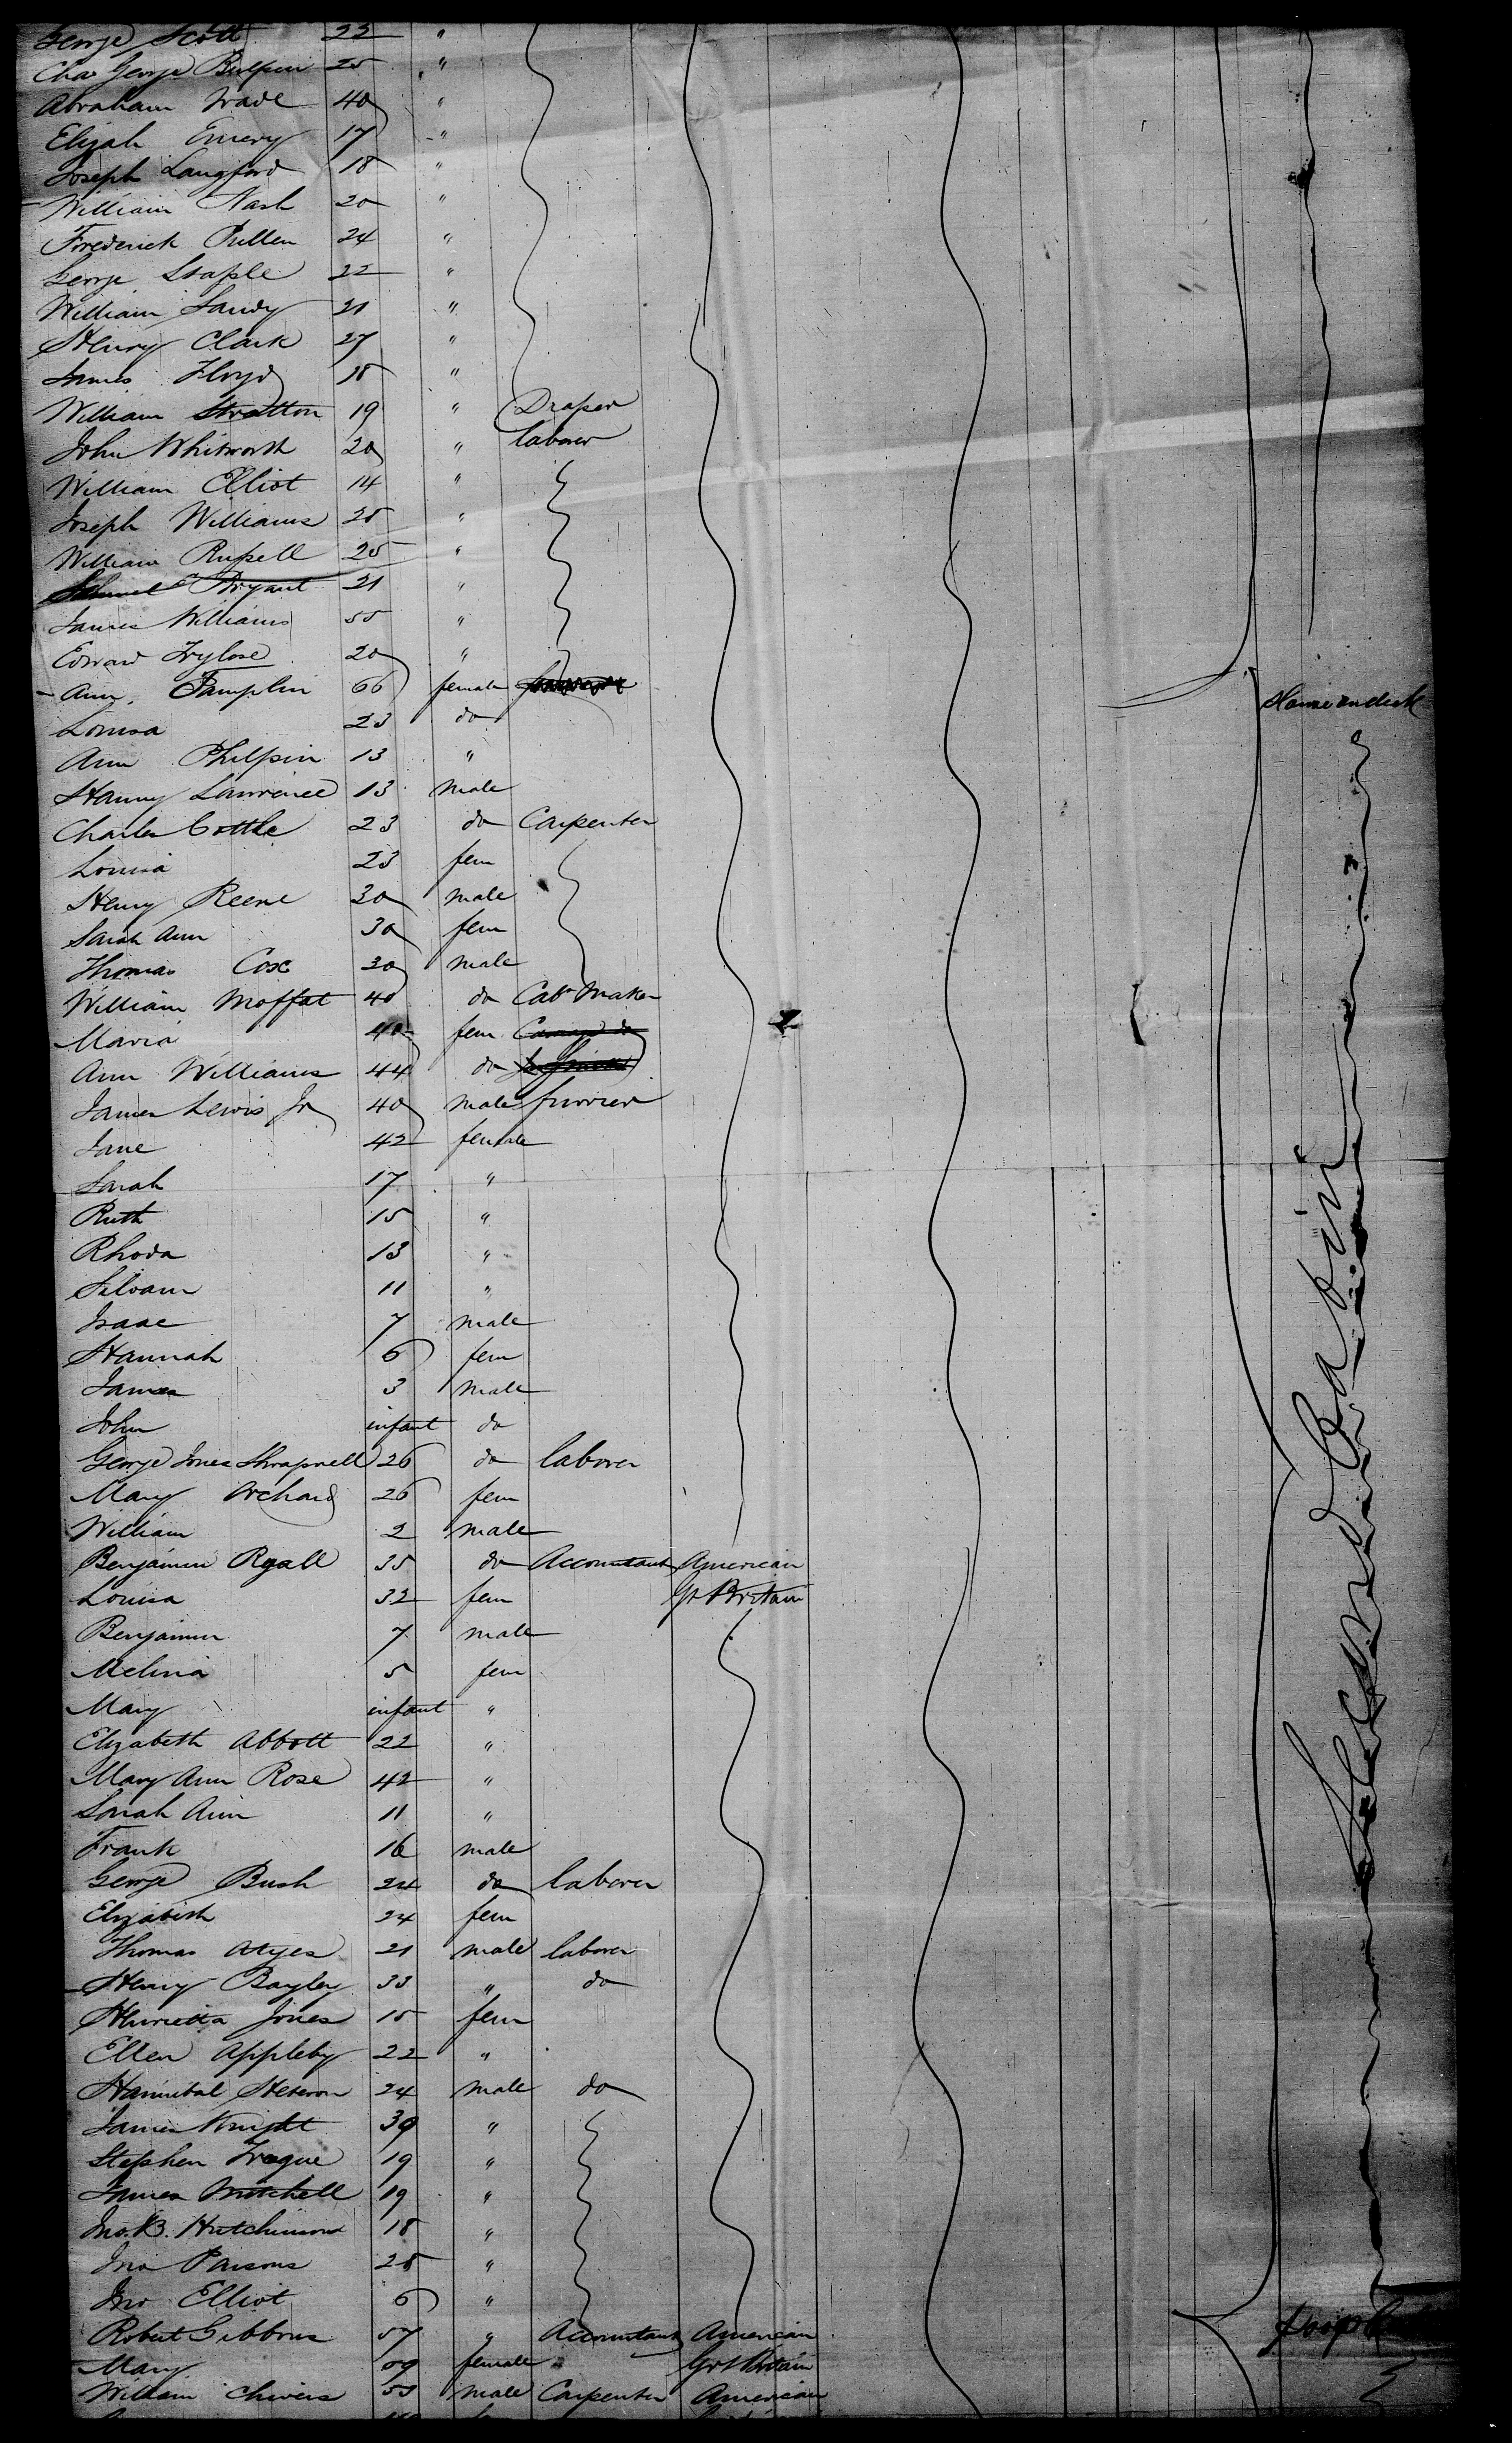 George Scott 22 "
Chas George Bulpin 25 "
Abraham Wade 40 "
Elijah Emery 17 "
Joseph Langford 18 "
William Nash 20 "
Frederick Pullen 24 "
George Staple 22 "
William Sandy 21 "
Henry Clark 27 "
James Floyd 18 "
William Stratton 19 " Draper
John Whitworth 20 " laborer
William Elliot 14 "
Joseph Williams 28 "
William Russell 25 "
Samuel Bryant 21 "
James Williams 55 "
Edward 20 "
Ann Tamplin 66 female
Louisa 23 do House on deck
Ann Philpin 13 "
Lawrence 13 male
Charles Cottle 23 do Carpenter
Louisa 23 fem
Henry 30 male
Sarah Ann 30 fem
Thomas Cox 30 male
William Moffat 40 do Cabt Maker
Maria 40 fem
Ann Williams 44 do
James Lewis Jr 40 male furrier
Jane 42 female
Sarah 17 "
Ruth 15 "
Rhoda 13 "
Siloam 11 "
Isaac 7 male
Hannah 6 fem
James 3 male
John infant do
George Jones Shrapnell 26 do laborer
Mary Orchard 26 fem
William 2 male
Benjamin Ryall 35 do Accountant American
Louisa 32 fem Gt Britain
Benjamin 7 male
Melina 5 fem
Mary infant "
Elizabeth Abbott 22 "
Mary Ann Rose 42 "
Sarah Ann 11 "
Frank 16 male
George Bush 24 do laborer
Elizabeth 24 fem
Thomas 21 male laborer
Henry Bayley 33 " do
Henrietta Jones 15 fem
Ellen Appleby 22 "
Hannibal 24 male do
James Knight 39 "
Stephen 19 "
James Mitchell 19 "
Jno. B. Hutchinson 18 "
Jno Parsons 28 "
Jno Elliot 6 "
Robert Gibbons 57 " Accountant American
Mary 59 female Grt Britain
William Chivers 53 male Carpenter American
Second Cabin